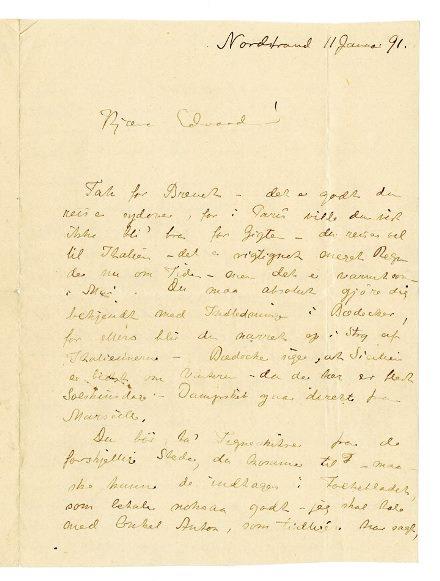 Nordstrand 11 Janua 91.
Kjære Edvard!
Tak for Brevet – det er godt du
reiser sydover, for i Paris vilde du vist
ikke bli' bra for Gigten – du reiser vel
til Italien – det er rigtignok meget Regn
der nu om Tiden – men det er varmt som
i Mai. Du maa absolut gjøre dig
bekjendt med Indledningen i Bædecker,
for ellers blir du narret op i Stry af
Italienerne – Bædecker siger, at Sicilien
er bedst om Vinteren – da der her er flest
Solskinsdage – Dampskib gaar direkte fra
Marseille.
Du bør ta' Tegneskitser fra de
forskjellige Steder, du kommer til – maa-
ske kunne de indtages i Folkebladet,
som betale noksaa godt – jeg skal tale
med Onkel Anton, som tidligere har sagt,